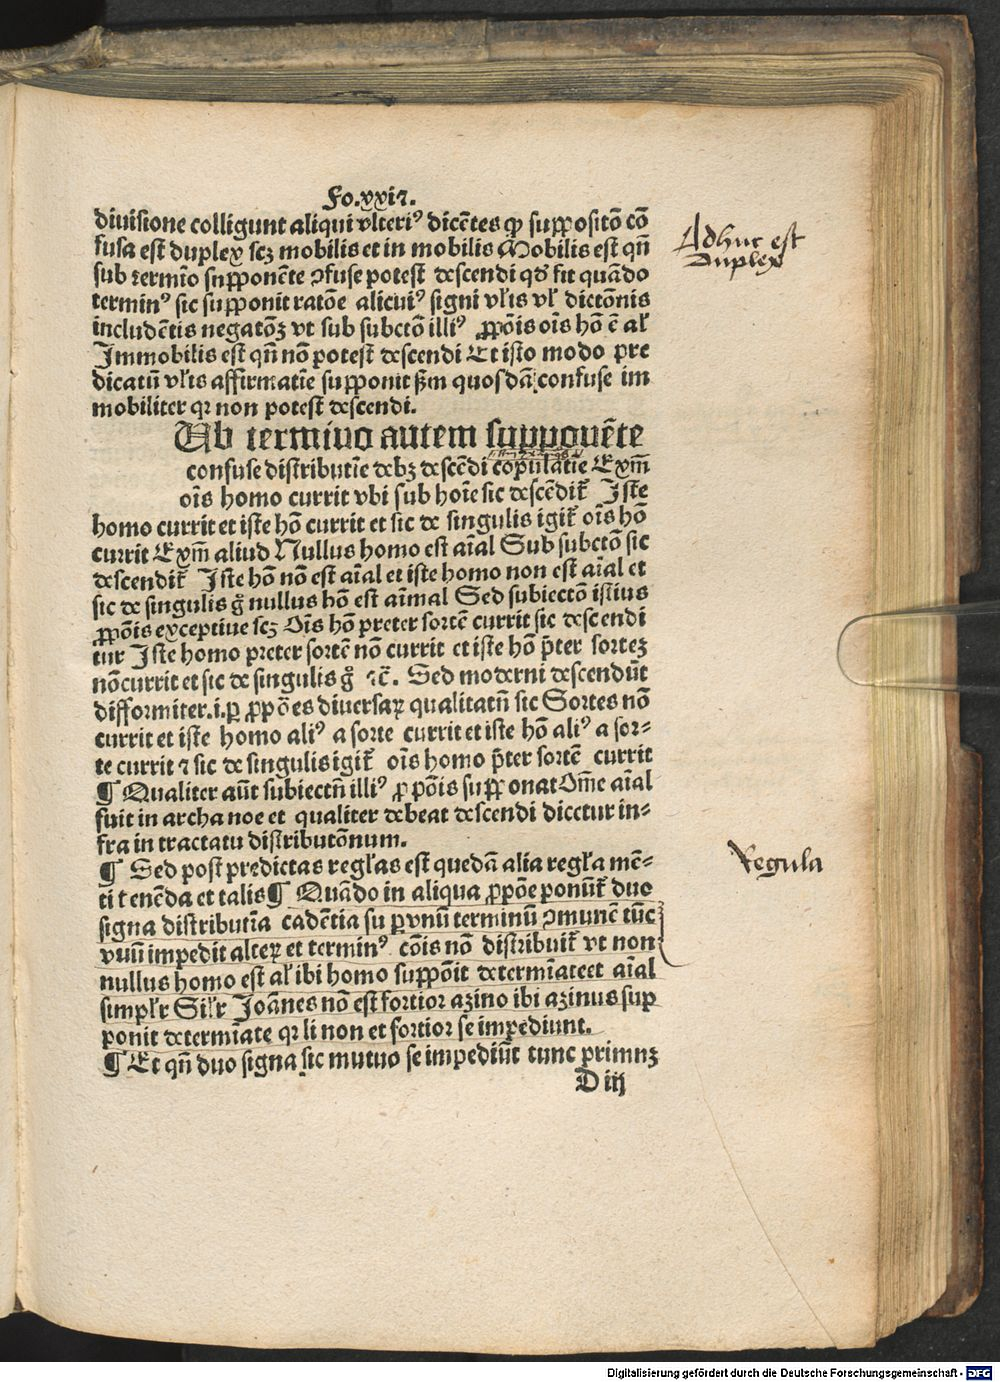 Fo.xxii.
diuisione colligunt aliqui vlteriꝰ dicẽtes ꝙ suppositõ cõ
fusa est duplex scꝫ mobilis et in mobilis Mobilis est qñ
sub termĩo supponẽte ↄfuse potest descendi qđ fit quãdo
terminꝰ sic supponit ratõe alicuiꝰ signi vƚis vƚ dictõnis
includẽtis negatõꝫ vt sub subctõ illiꝰ ꝓpõis oĩs hõ ẽ aƚ
Immobilis est qñ nõ potest descendi Et isto modo pre
dicatũ vƚis affirmatiẽ supponit ẞm quosdã confuse im
mobiliter qꝛ non potest descendi.
Ub termino autem supponẽte
confuse distributiẽ debꝫ descẽdi copulatiẽ Exm̃
oĩs homo currit vbi sub hoĩe sic descẽdit̃ Iste
homo currit et iste hõ currit et sic de singulis igit̃ oĩs hõ
currit Exm̃ aliud Nullus homo est aĩal Sub subctõ sic
descendit̃ Iste hõ nõ est aĩal et iste homo non est aĩal et
sic de singulis g̃ nullus hõ est aĩmal Sed subiectõ istius
ꝓpõis exceptiue scꝫ Oĩs hõ preter sortẽ currit sic descendi
tur Iste homo preter sortẽ nõ currit et iste hõ p̃ter sorteꝫ
nõcurrit et sic de singulis g̃ ⁊c̃. Sed moderni descendũt
difformiter.i.ꝑ ꝓpões diuersaꝝ qualitatũ sic Sortes nõ
currit et iste homo aliꝰ a sorte currit et iste hõ aliꝰ a sor-
te currit ⁊ sic de singulis igit̃ oĩs homo p̃ter sortẽ currit
¶ Qualiter aũt subiectũ illiꝰ ꝓpõis supponat Om̃e aĩal
fuit in archa noe et qualiter debeat descendi dicetur in-
fra in tractatu distributõnum.
¶ Sed post predictas regƚas est quedã alia regƚa mẽ-
ti tenẽda et talis ¶ Quãdo in aliqua ꝓpõe ponũt̃ duo
signa distributĩa cadẽtia su ꝑ vnũ terminũ ↄmunẽ tũc
vnũ impedit alteꝝ et terminꝰ cõis nõ distribuit̃ vt non
nullus homo est aƚ ibi homo suppõit determĩateet aĩal
simpƚr Siƚr Ioãnes nõ est fortior azino ibi azinus sup
ponit determĩate qꝛ li non et fortior se impediunt.
¶ Et qñ duo signa sic mutuo se impediũt tunc primuꝫ
D iij
Adhuc est
Duplex
Regula
Digitalisierung gefördert durch die Deutsche Forschungsgemeinschaft - DFG